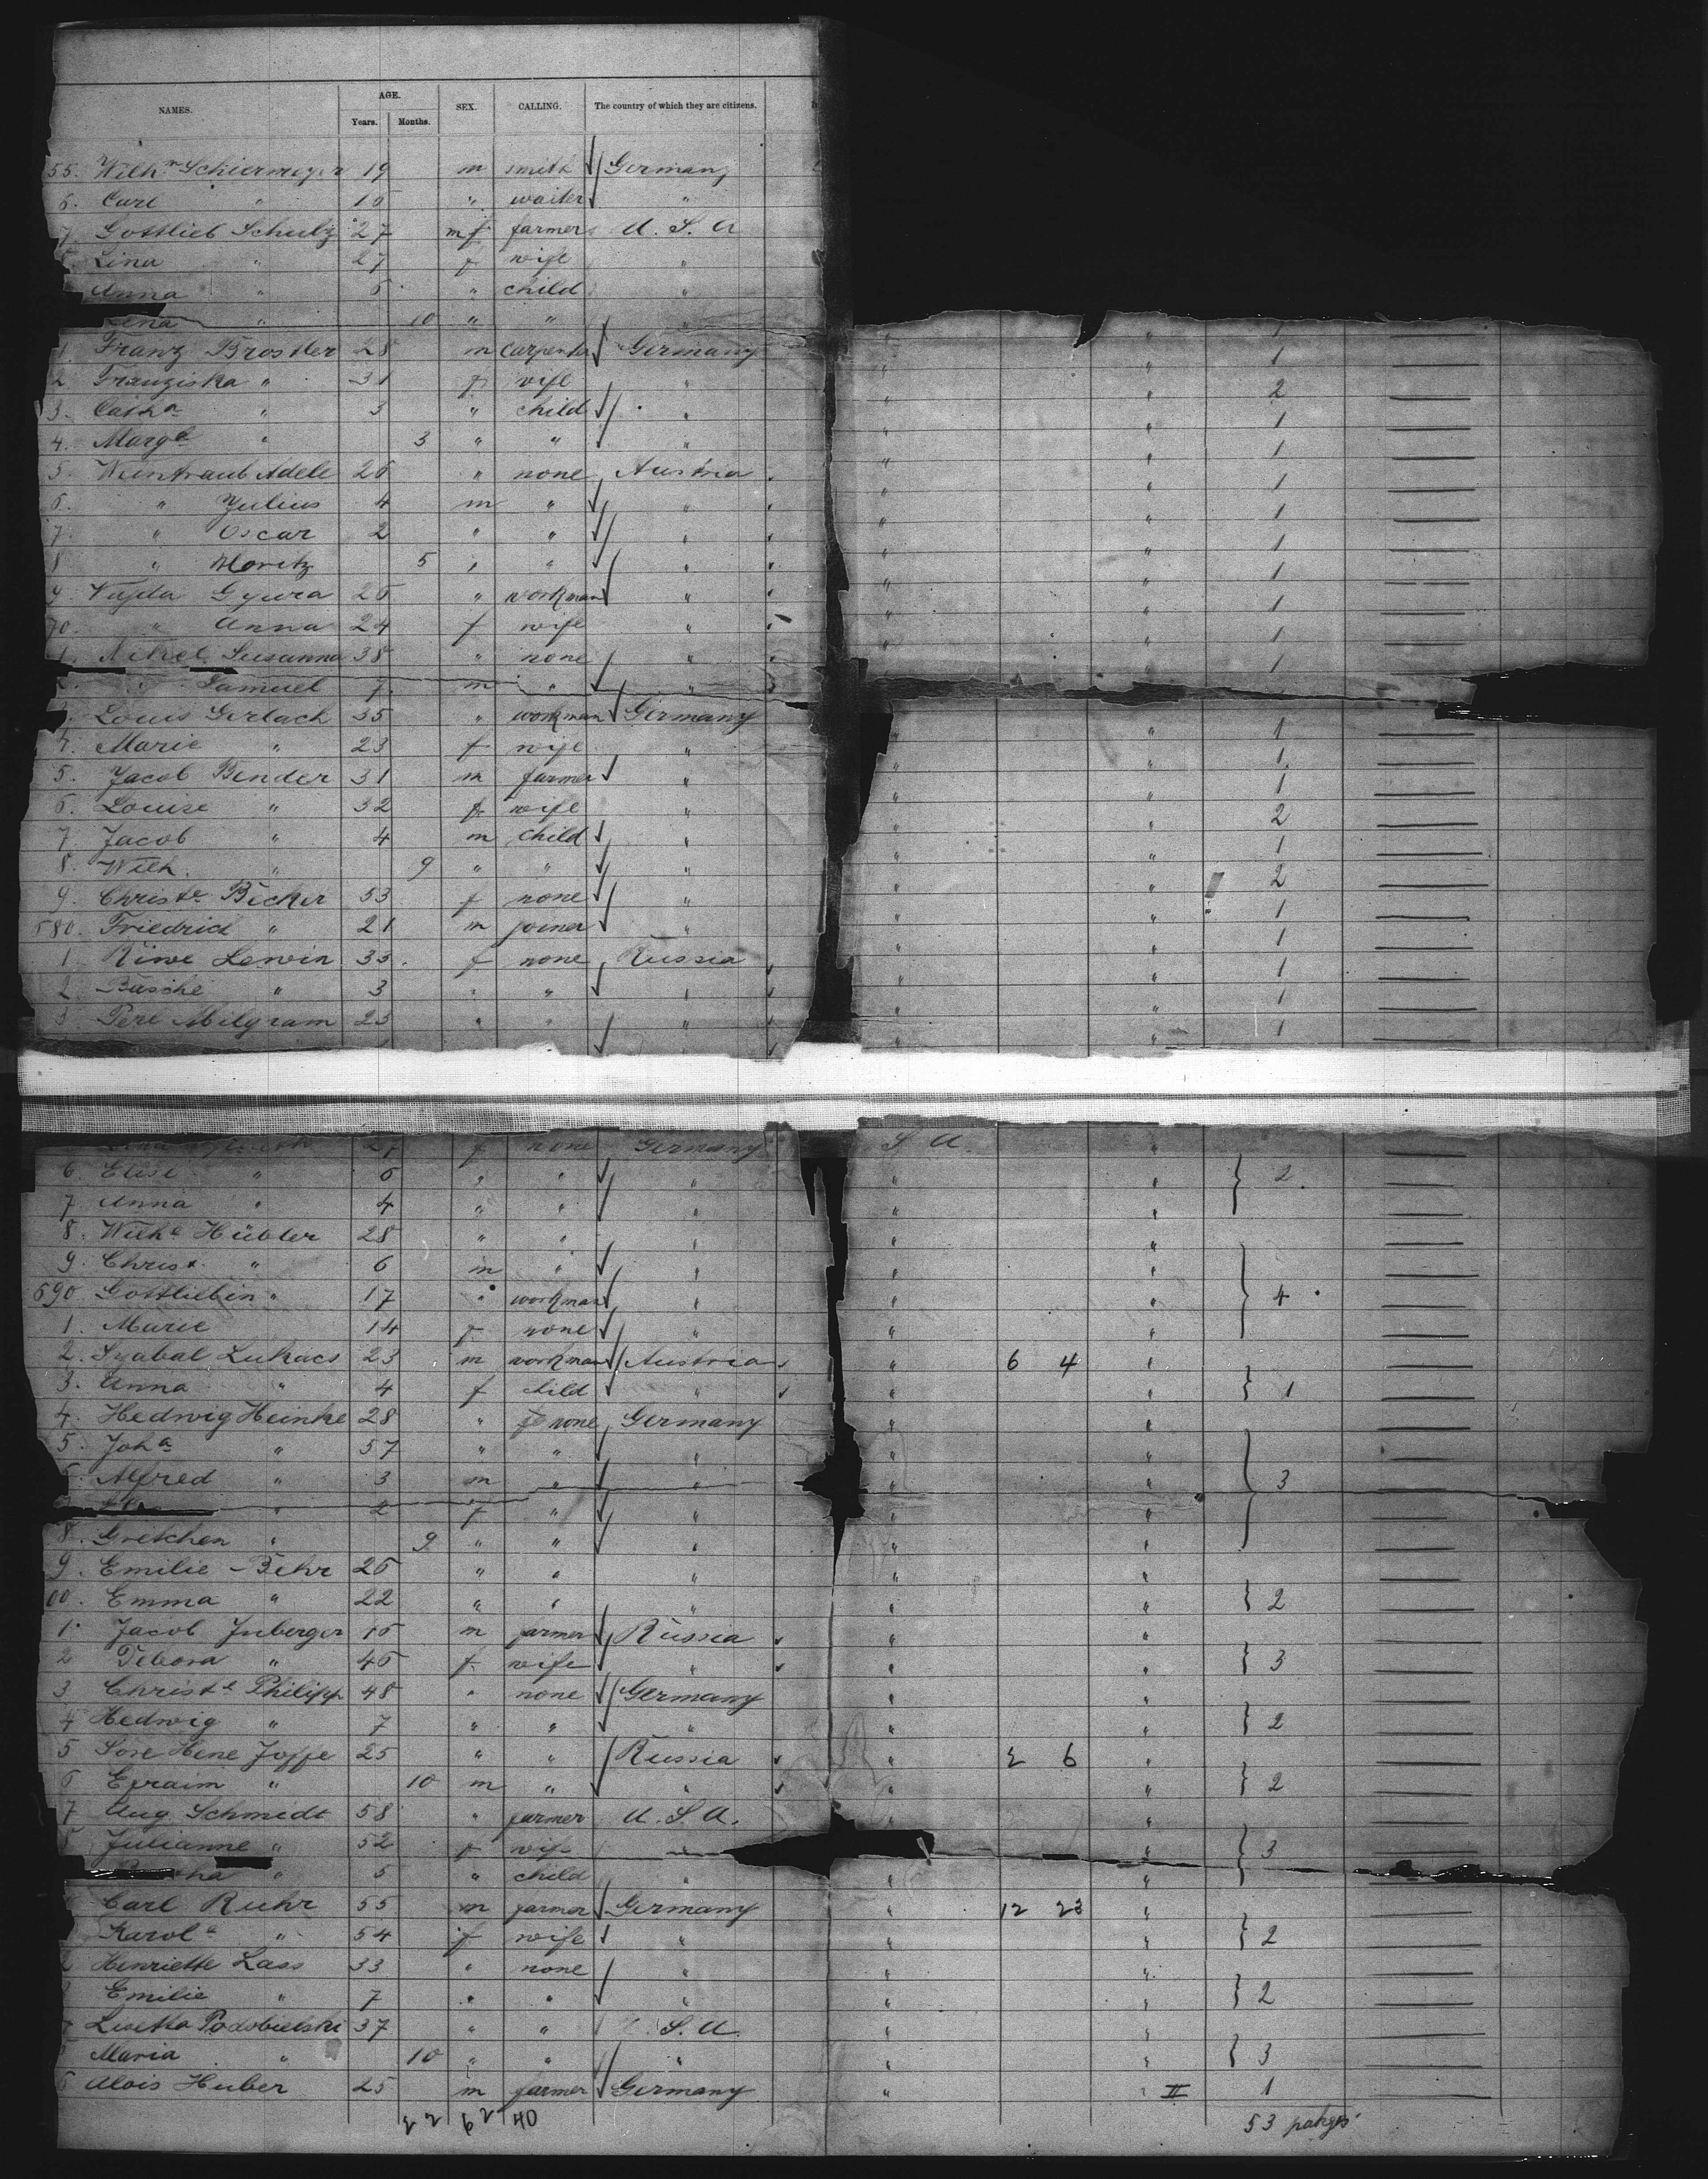 NAMES. AGE. SEX. CALLING. The country of which they are citizens.
Years. Months.
55. Wilhm Schiermeyer 19 m smith Germany
6. Carl " " waiter "
7. Gottlieb Schulz 27 m f farmer U. S. A
Lina " 27 f wife "
Anna " " child "
Lena " 10 " " "
1. Franz Brostler 28 m carpenter Germany " " 1
2. Franziska " 31 f wife " " " 2
3. Catha " 3 " child " " " 1
4. Marge " 3 " " " " " 1
5. Weintraub Adele 26 " none Austria " " 1
6. " Julius 4 m " " " " 1
7. " Oscar 2 " " " " " 1
8 " Moritz 5 " " " " " 1
9. Vajda Gyura 26 " workman " " " 1
70. " Anna 24 f wife " " " 1
1. Susanna 38 " none " " " 1
2. " Samuel 7 m " "
3. Louis Gerlach 35 " workman Germany " " 1
4. Marie " 23 f wife " " " 1
5. Jacob Bender 31 m farmer " " " 1
6. Louise " 32 f wife " " " 2
7 Jacob " 4 m child " " " 1
8. Wilh. " 9 " " " " " 2
9. Christe Becker 53 f none " " " 1
680. Friedrich " 21 m joiner " " " 1
1 Riwe Lewin 33. f none Russia " " 1
2 Basche " 3 " " " " " 1
3. Perl Milgram 23 " " " " " 1
f none Germany S A. "
6 Elise " 6 " " " " " 2.
7 Anna " 4 " " " " "
8. Wilhe Hübler 28 " " " " "
9. Christ. " 6 m " " " "
690. Gottliebin " 17 " workman " " " 4
1. Marie " 14 f none " " "
2. Szabal Lukacs 23 m workman Austria " 6 4 "
3. Anna " 4 f child " " " 1
4. Hedwig Heinke 28 " none Germany " "
5. Joha " 57 " " " " "
6. Alfred " 3 m " " " " 3
" 2 f " " " "
8. Gretchen " 9 " " " " "
9. Emilie Behr 26 " " " " "
00. Emma " 22 " " " " " 2
1. Jacob farmer Russia " "
2 Debora " 46 f. wife " " " 3
3 Christe Philipp 48 " none Germany " "
4 Hedwig " 7 " " " " " 2
5 Sore Hene Joffe 25 " " Russia " 3 6 "
6 Efraim " 10 m " " " " 2
7 Aug. Schmidt 58 " farmer U. S. A. " "
8 Julianne " 52 f wife " " " 3
" 5 " child " " "
Carl Ruhr 55 m farmer Germany " 12 23 "
Karola " 54 f wife " " " 2
2 Henriette Lass 33 " none " " "
Emilie " 7 " " " " " 2
Lisetta Podobielski 37 " " S. A. " "
Maria " 10 " " " " " 3
6 Alois Huber 25 m farmer Germany " " II 1
40 53 pakges